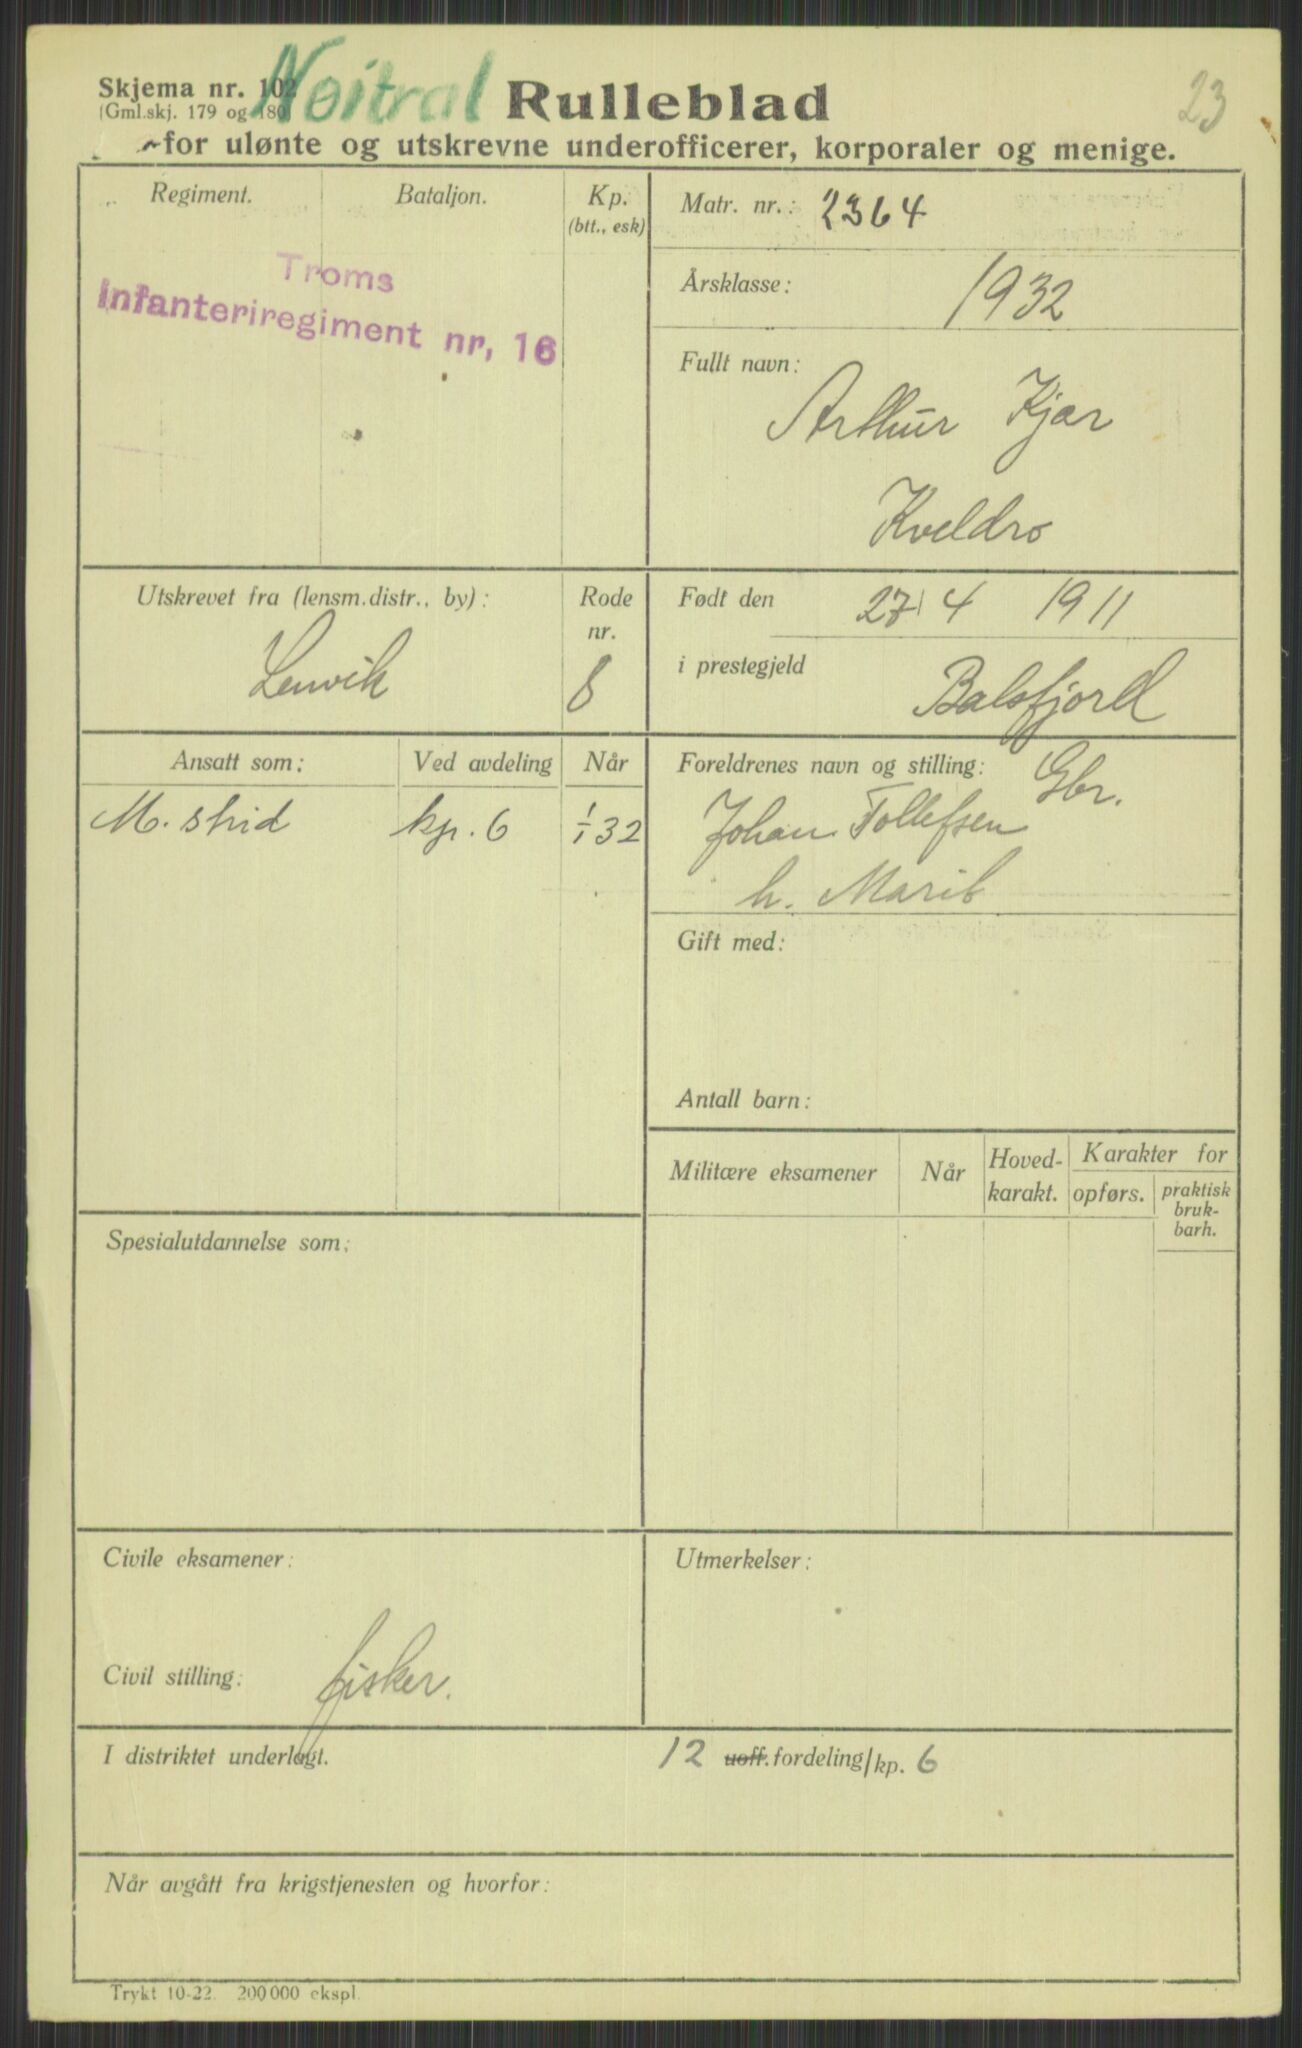 Skjema nr. 102
(Gml.skj. 179 og 180)
Nøitral
Rulleblad
23
for ulønte og utskrevne underofficerer, korporaler og menige.
Regiment.
Bataljon.
Kp.
(btt., esk)
Troms
Infanteriregiment nr, 16
Matr. nr.: 2364
Årsklasse: 1932
Fullt navn:
Arthur Kjær
Kveldro
Utskrevet fra (lensm.distr., by):
Lenvik
Rode
nr.
8
Født den 27/4 1911
i prestegjeld Balsfjord
Ansatt som:
Ved avdeling
Når
M. strid kp. 6 1/1 32
Foreldrenes navn og stilling: Gbr.
Johan Tollefsen
h. Marit
Gift med:
Antall barn:
Militære eksamener
Når
Hoved-
karakt.
Karakter for
opførs.
praktisk
bruk-
barh.
Spesialutdannelse som:
Civile eksamener:
Utmerkelser:
Civil stilling: fisker.
I distriktet underlagt. 12 uoff. fordeling/kp. 6
Når avgått fra krigstjenesten og hvorfor:
Trykt 10-22. 200 000 ekspl.